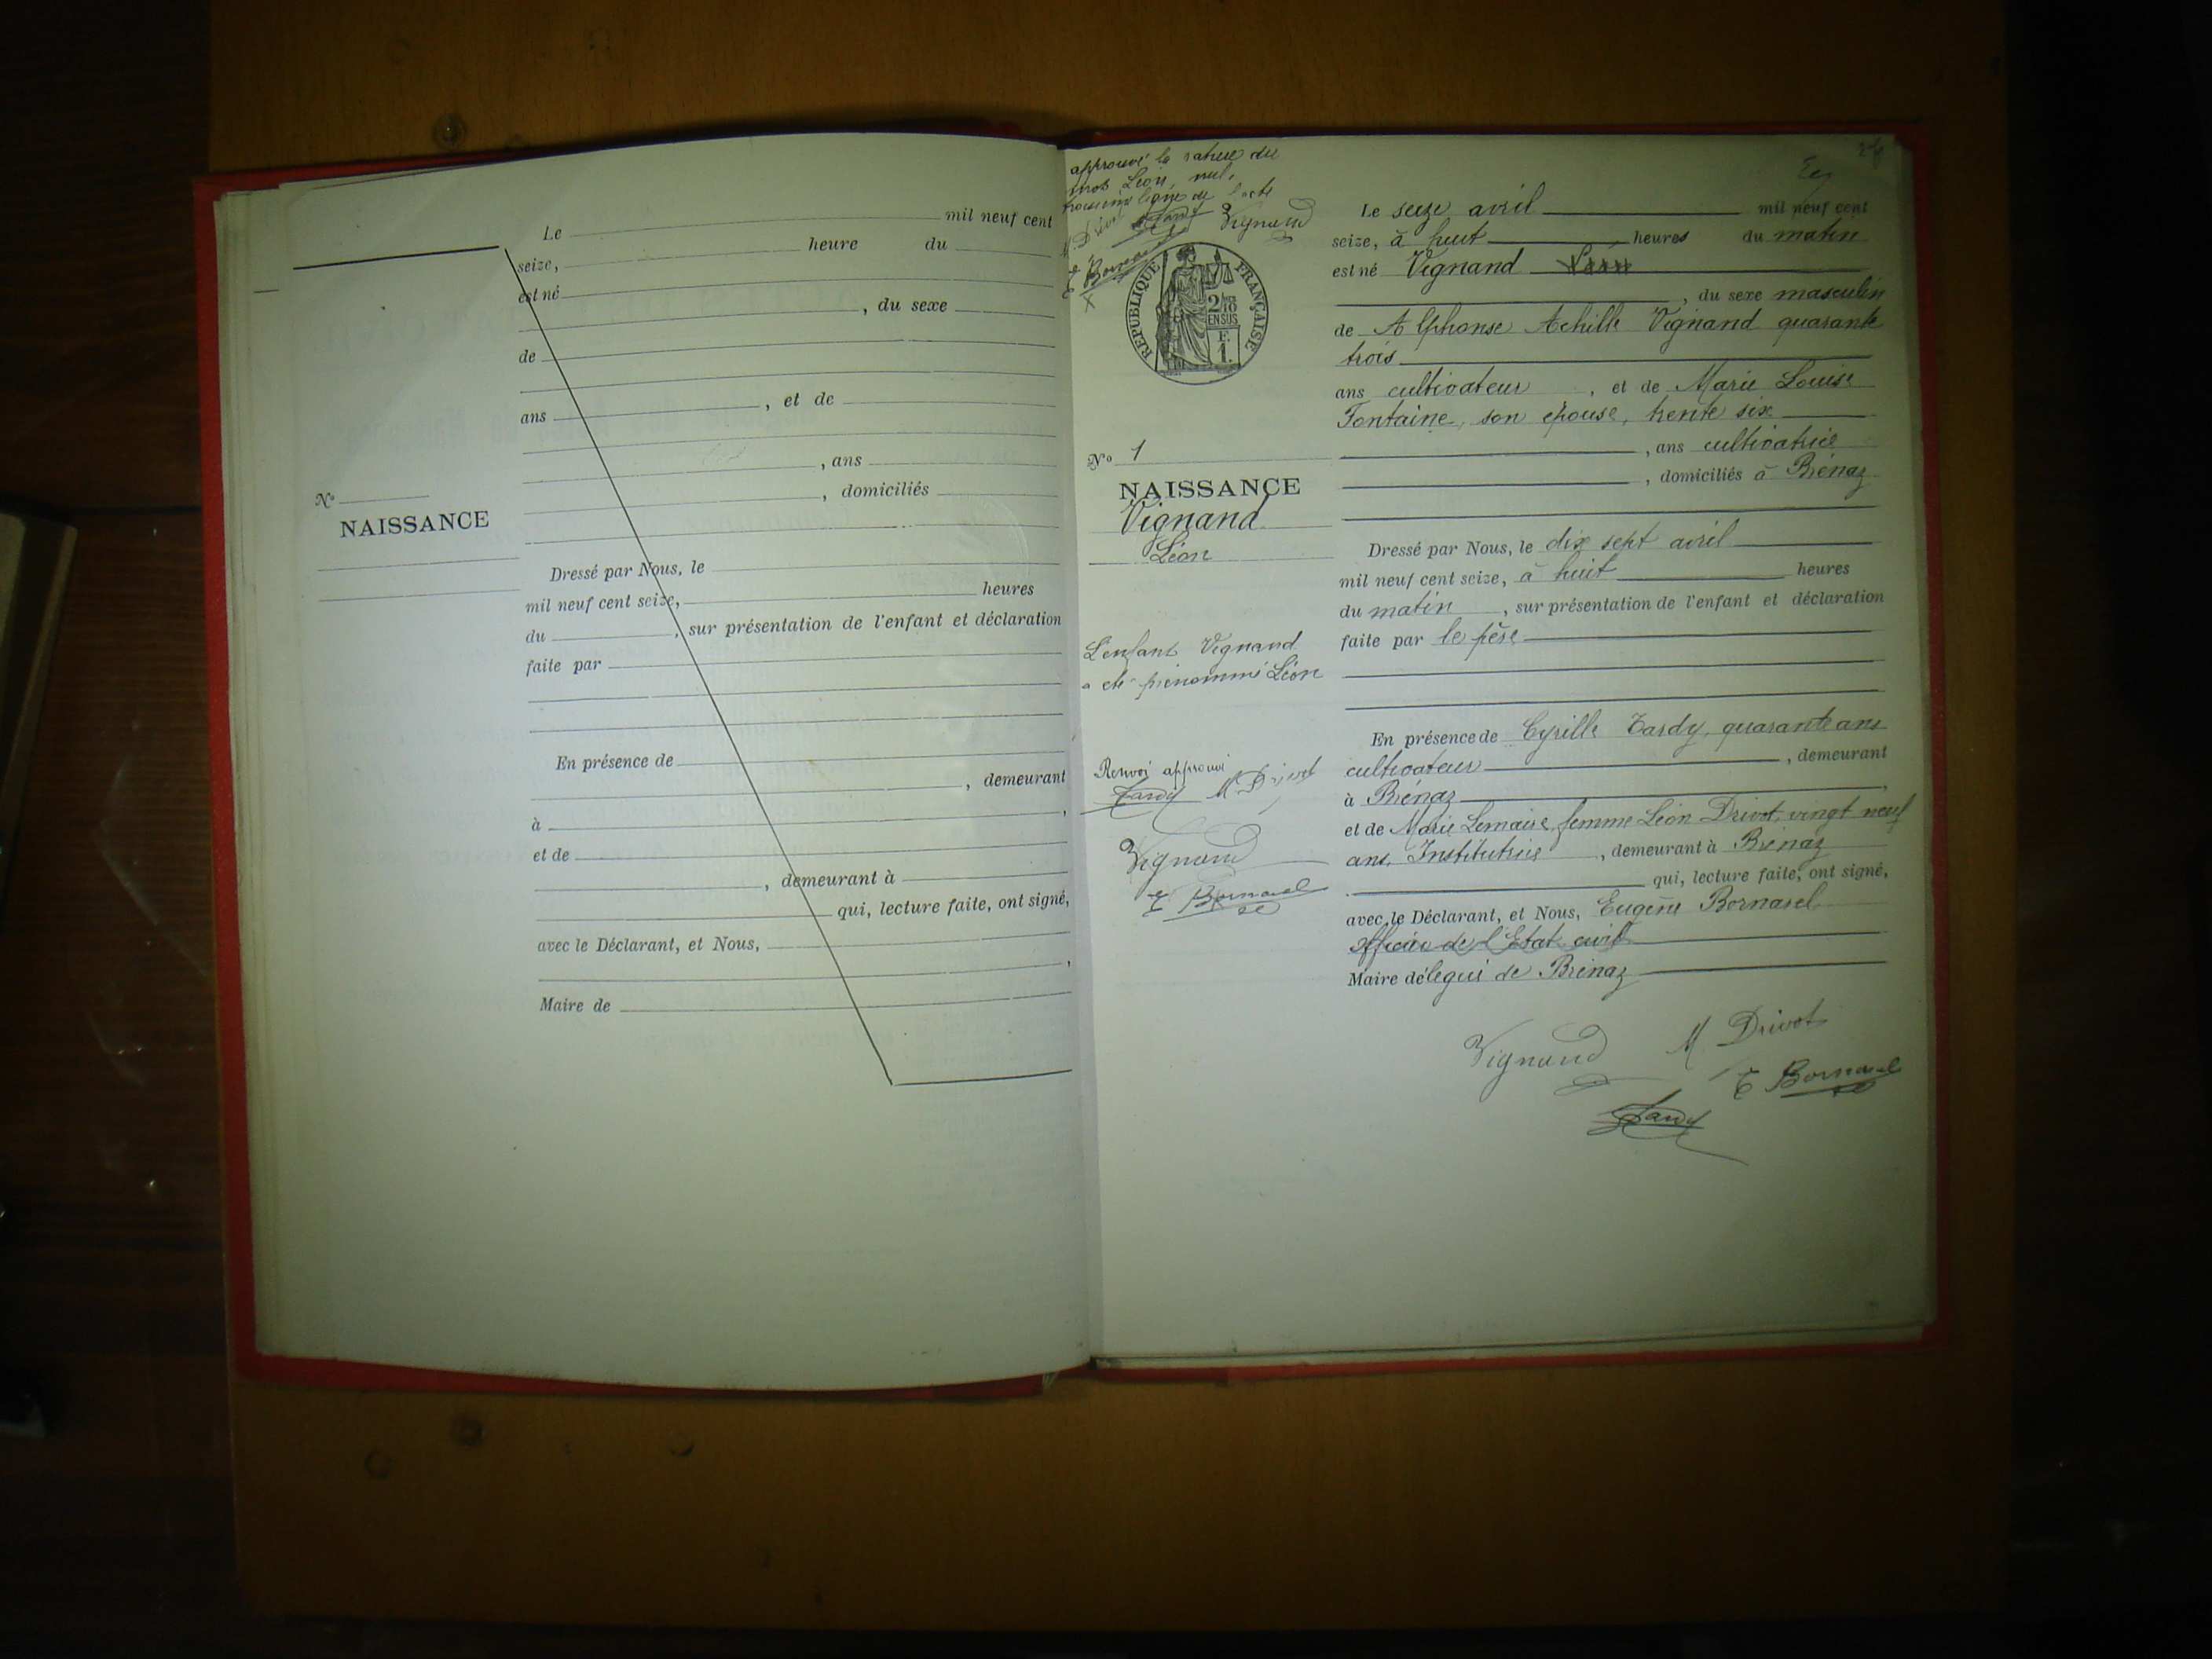 Le mil neuf cent
seize, heure du
est né
, du sexe
de
ans , et de
, ans
, domiciliés
N°
NAISSANCE
Dressé par Nous, le
mil neuf cent seize, heures
du , sur présentation de l'enfant et déclaration
faite par
En présence de
, demeurant
à ,
et de
, demeurant à
qui, lecture faite, ont signé,
avec le Déclarant, et Nous,
,
Maire de
approuvé la rature du
mot Léon, nul,
troisième ligne de l'acte
M. Drivot Tardy Vignand
E Bornarel
RÉPUBLIQUE FRANÇAISE
2/10
EN SUS
F.
1.
N° 1
NAISSANCE
Vignand
Léon
L'enfant Vignand
a été prénommé Léon
Renvoi approuvé
Tardy M. Drivot
Vignand
E Bornarel
Le seize avril mil neuf cent
seize, à huit heures du matin
est né Vignand Léon
, du sexe masculin
de Alphonse Achille Vignand quarante
trois
ans cultivateur , et de Marie Louise
Fontaine, son épouse, trente six
, ans cultivatrice
, domiciliés à Brénaz
Dressé par Nous, le dix sept avril
mil neuf cent seize, à huit heures
du matin , sur présentation de l'enfant et déclaration
faite par le père
En présence de Cyrille Tardy, quarante ans
cultivateur , demeurant
à Brénaz ,
et de Marie Lemaire femme Léon Drivot, vingt neuf
ans, Institutrice , demeurant à Brénaz
qui, lecture faite, ont signé,
avec le Déclarant, et Nous, Eugène Bornarel
officier de l'Etat civil
Maire délégué de Brénaz
Vignand M Drivot
E Bornarel
Tardy